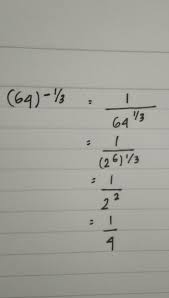 (64)^-1/3 = 1/64^1/3
= 1/(2^6)^1/3
= 1/2^2
= 1/4